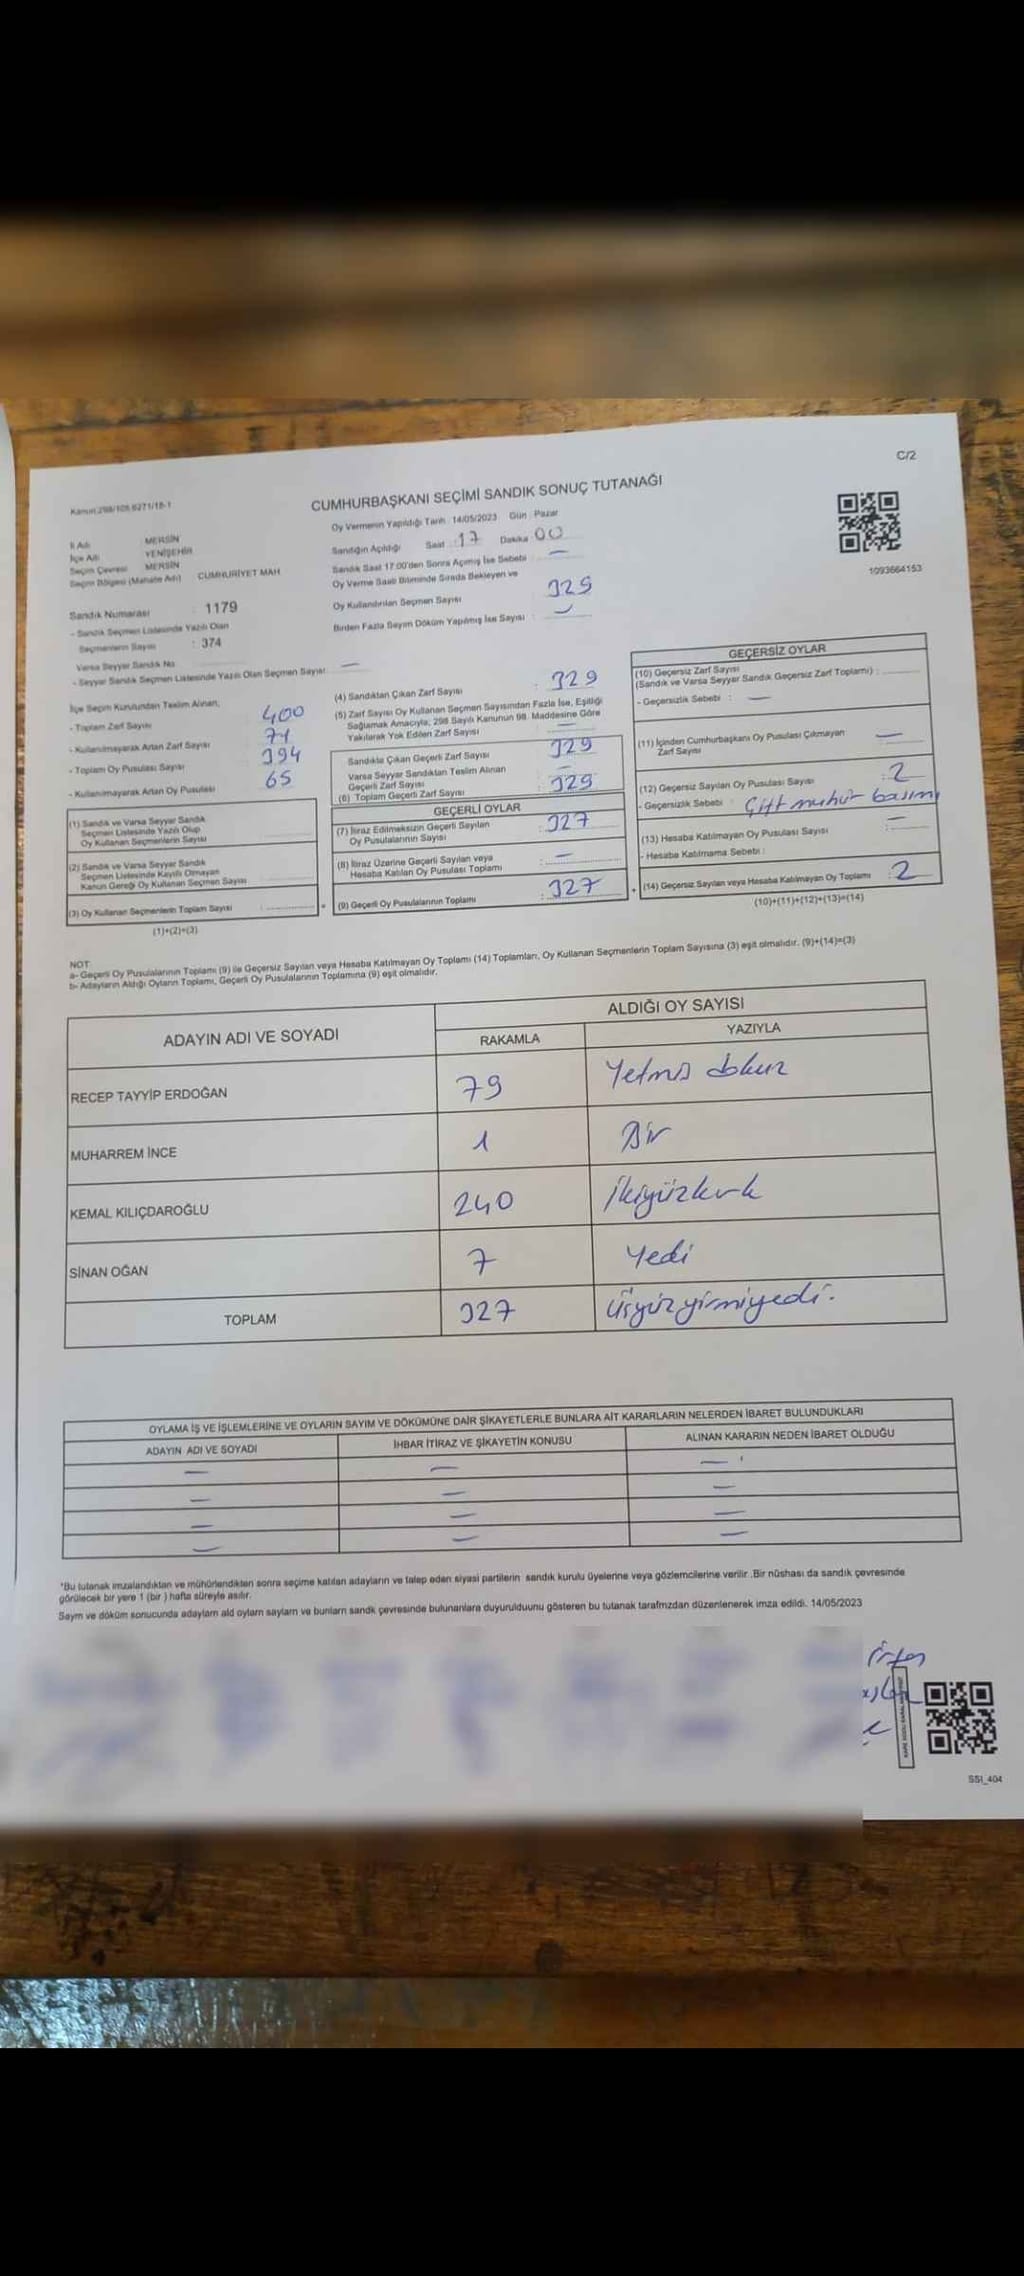 C/2
Kanun:298/105 6271/18-1
CUMHURBAŞKANI SEÇİMİ SANDIK SONUÇ TUTANAĞI
Oy Vermenin Yapıldığı Tarih : 14/05/2023 Gün : Pazar
İl Adı MERSİN
İlçe Adı YENİŞEHİR
Seçim Çevresi MERSİN
Seçim Bölgesi (Mahalle Adı) CUMHURİYET MAH
Sandığın Açıldığı Saat : 17 Dakika : 00
Sandık Saat 17.00'den Sonra Açımış İse Sebebi : —
Oy Verme Saati Bitiminde Sırada Bekleyen ve
Oy Kullandırılan Seçmen Sayısı : 329
Birden Fazla Sayım Döküm Yapılmış İse Sayısı : —
1093664153
Sandık Numarası : 1179
- Sandık Seçmen Listesinde Yazılı Olan
Seçmenlerin Sayısı : 374
Varsa Seyyar Sandık No
- Seyyar Sandık Seçmen Listesinde Yazılı Olan Seçmen Sayısı : —
İlçe Seçim Kurulundan Teslim Alınan;
- Toplam Zarf Sayısı 400
- Kullanılmayarak Artan Zarf Sayısı 71
- Toplam Oy Pusulası Sayısı 394
- Kullanılmayarak Artan Oy Pusulası 65
(1) Sandık ve Varsa Seyyar Sandık
Seçmen Listesinde Yazılı Olup
Oy Kullanan Seçmenlerin Sayısı
(2) Sandık ve Varsa Seyyar Sandık
Seçmen Listesinde Kayıtlı Olmayan
Kanun Gereği Oy Kullanan Seçmen Sayısı
(3) Oy Kullanan Seçmenlerin Toplam Sayısı :
(1)+(2)=(3)
(4) Sandıktan Çıkan Zarf Sayısı : 329
(5) Zarf Sayısı Oy Kullanan Seçmen Sayısından Fazla İse, Eşitliği
Sağlamak Amacıyla, 298 Sayılı Kanunun 98. Maddesine Göre
Yakılarak Yok Edilen Zarf Sayısı —
Sandıkta Çıkan Geçerli Zarf Sayısı 329
Varsa Seyyar Sandıktan Teslim Alınan
Geçerli Zarf Sayısı —
(6) Toplam Geçerli Zarf Sayısı : 329
GEÇERLİ OYLAR
(7) İtiraz Edilmeksizin Geçerli Sayılan
Oy Pusulalarının Sayısı : 327
(8) İtiraz Üzerine Geçerli Sayılan veya
Hesaba Katılan Oy Pusulası Toplamı : —
(9) Geçerli Oy Pusulalarının Toplamı : 327
GEÇERSİZ OYLAR
(10) Geçersiz Zarf Sayısı
(Sandık ve Varsa Seyyar Sandık Geçersiz Zarf Toplamı) :
- Geçersizlik Sebebi : —
(11) İçinden Cumhurbaşkanı Oy Pusulası Çıkmayan
Zarf Sayısı —
(12) Geçersiz Sayılan Oy Pusulası Sayısı : 2
- Geçersizlik Sebebi : Çift mühür basımı
(13) Hesaba Katılmayan Oy Pusulası Sayısı : —
- Hesaba Katılmama Sebebi :
(14) Geçersiz Sayılan veya Hesaba Katılmayan Oy Toplamı : 2
(10)+(11)+(12)+(13)=(14)
NOT:
a- Geçerli Oy Pusulalarının Toplamı (9) ile Geçersiz Sayılan veya Hesaba Katılmayan Oy Toplamı (14) Toplamları, Oy Kullanan Seçmenlerin Toplam Sayısına (3) eşit olmalıdır. (9)+(14)=(3)
b- Adayların Aldığı Oyların Toplamı, Geçerli Oy Pusulalarının Toplamına (9) eşit olmalıdır.
ADAYIN ADI VE SOYADI ALDIĞI OY SAYISI
RAKAMLA YAZIYLA
RECEP TAYYİP ERDOĞAN 79 Yetmiş dokuz
MUHARREM İNCE 1 Bir
KEMAL KILIÇDAROĞLU 240 İkiyüzkırk
SİNAN OĞAN 7 Yedi
TOPLAM 327 Üçyüzyirmiyedi.
OYLAMA İŞ VE İŞLEMLERİNE VE OYLARIN SAYIM VE DÖKÜMÜNE DAİR ŞİKAYETLERLE BUNLARA AİT KARARLARIN NELERDEN İBARET BULUNDUKLARI
ADAYIN ADI VE SOYADI İHBAR İTİRAZ VE ŞİKAYETİN KONUSU ALINAN KARARIN NEDEN İBARET OLDUĞU
— — —
— — —
— — —
— — —
*Bu tutanak imzalandıktan ve mühürlendikten sonra seçime katılan adayların ve talep eden siyasi partilerin sandık kurulu üyelerine veya gözlemcilerine verilir .Bir nüshası da sandık çevresinde
görülecek bir yere 1 (bir ) hafta süreyle asılır.
Sayım ve döküm sonucunda adayların ald oyların sayların ve bunların sandk çevresinde bulunanlara duyurulduunu gösteren bu tutanak tarafmzdan düzenlenerek imza edildi. 14/05/2023
SSI_404